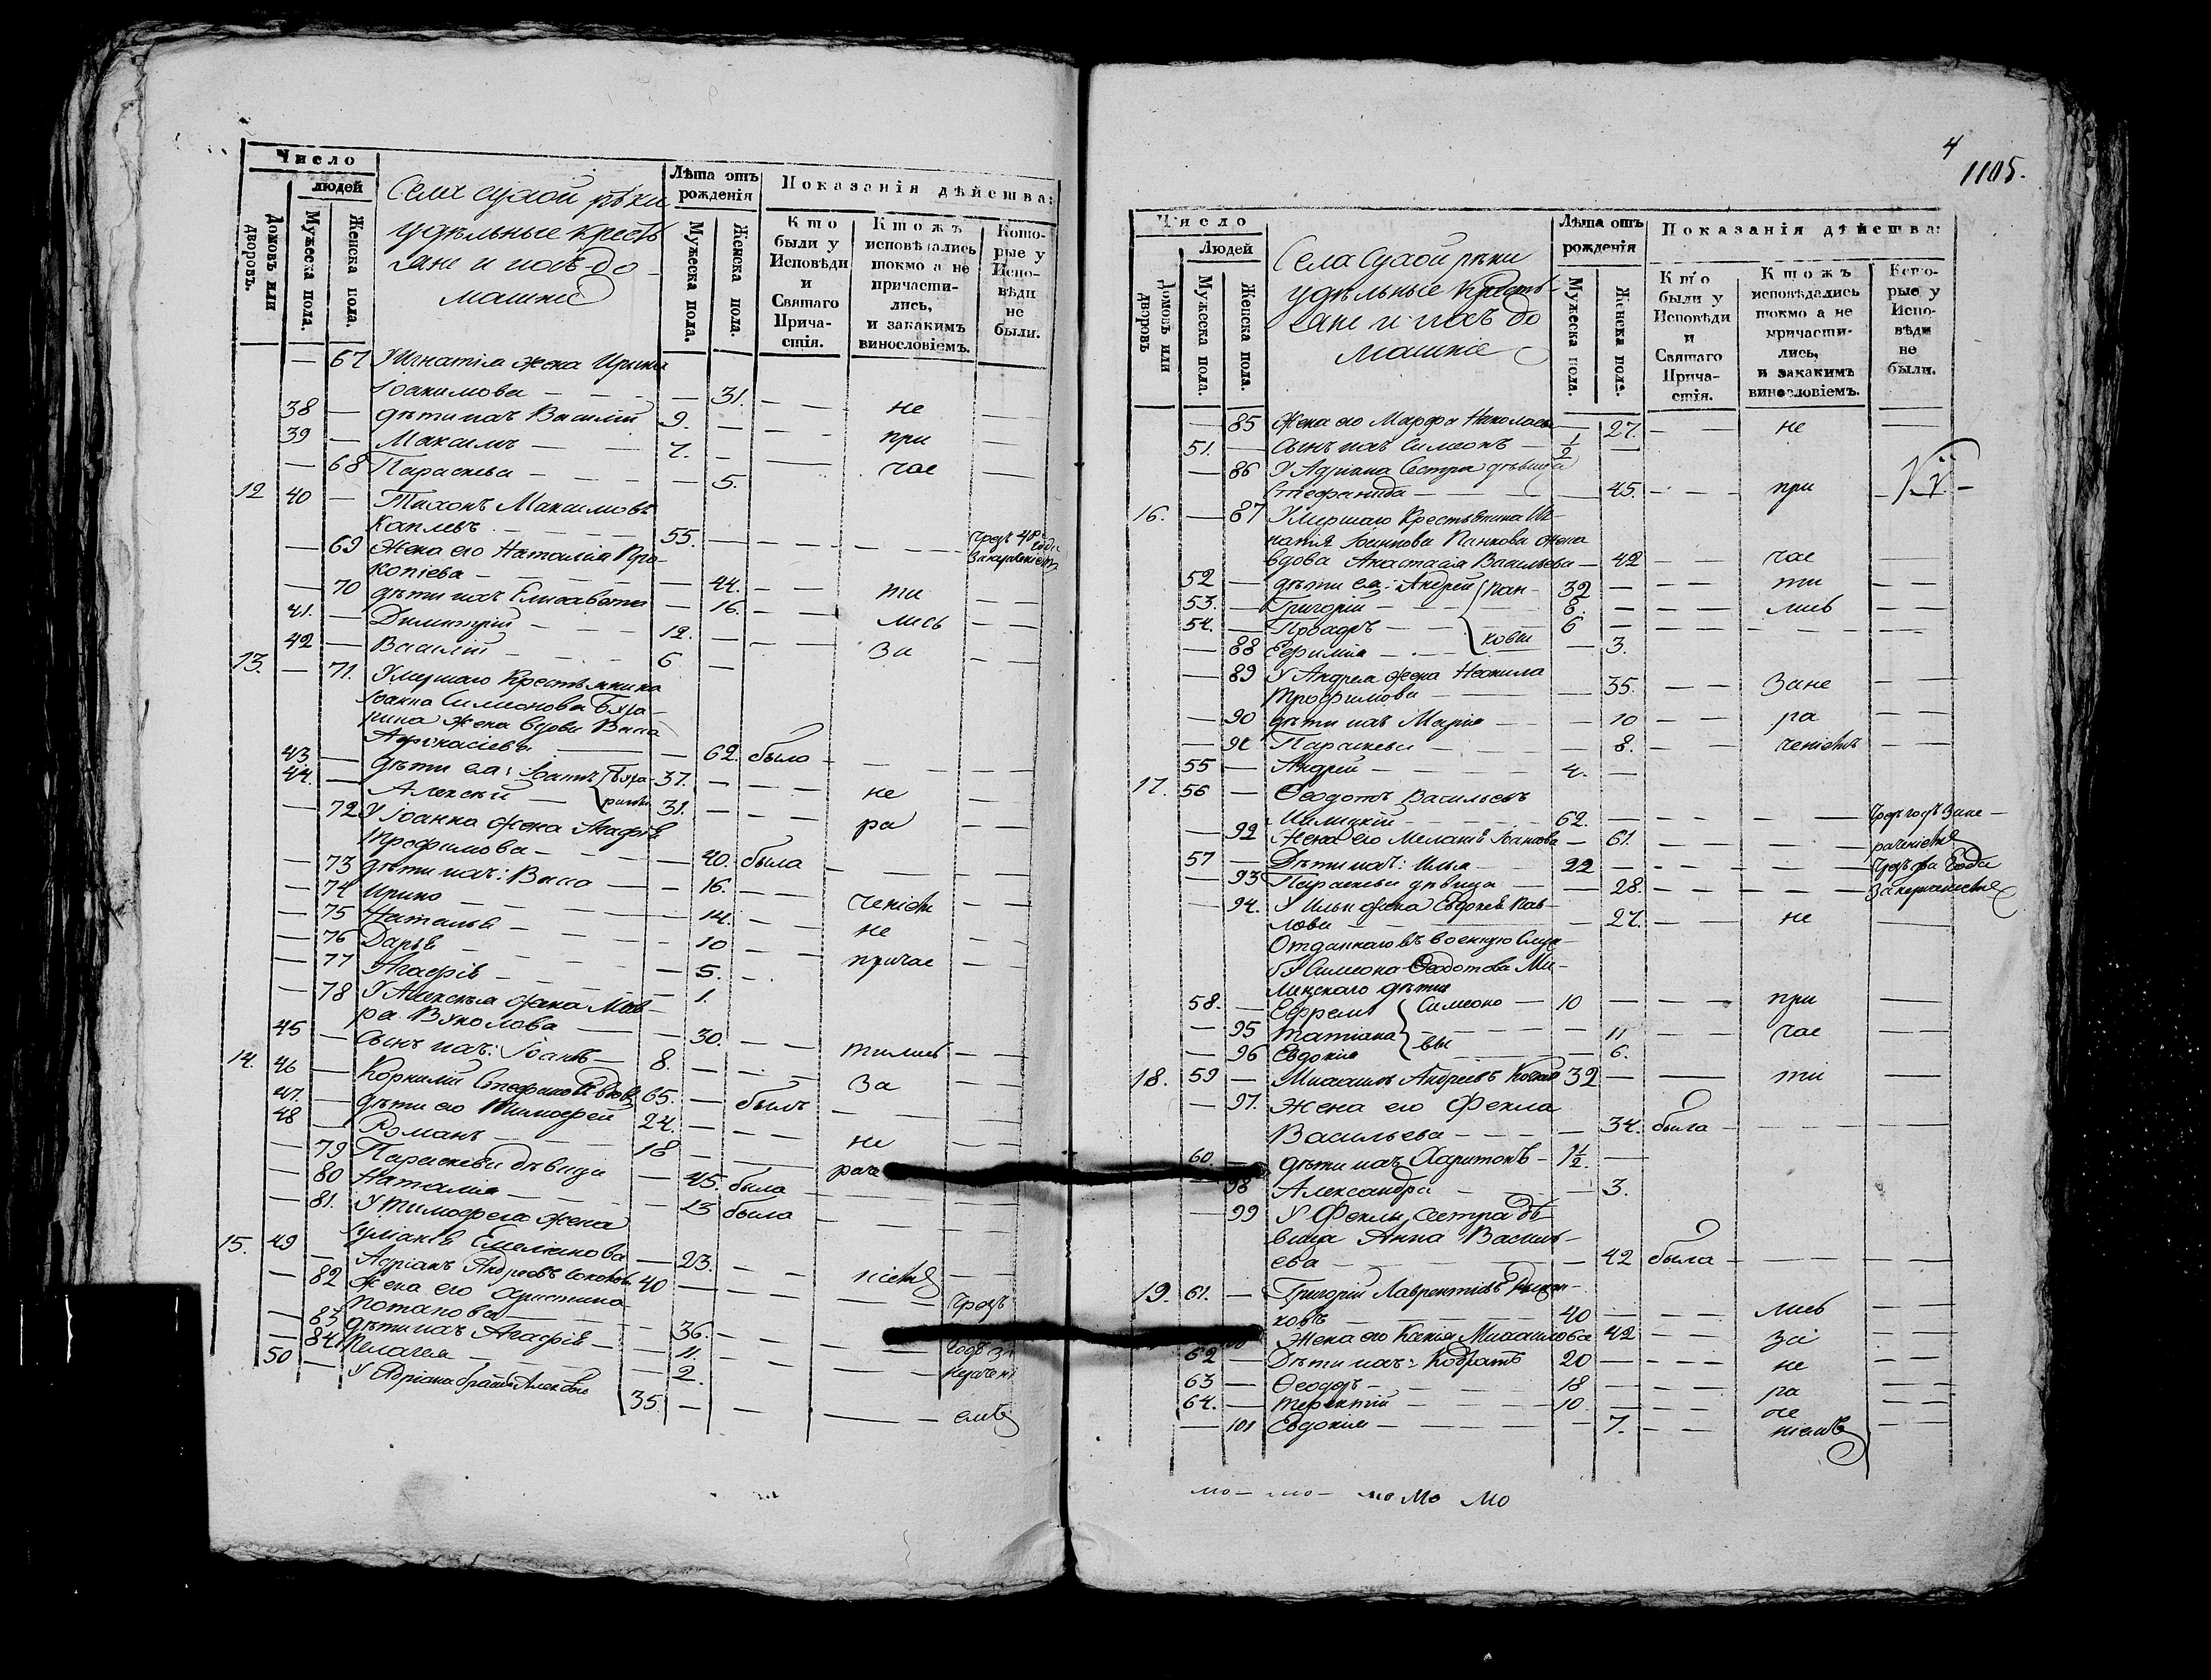 Число
людей
Домовъ или дворовъ.
Мужеска пола.
Женска пола.
Села Сухой рѣки
удѣльные кресть
яне и ихъ до
машніе
Лѣта отъ рожденія
Мужеска пола.
Женска пола.
Показанія дѣйства:
Кто были у Исповѣди и Святаго Причастія.
Ктожъ исповѣдались токмо а не причастились, и закакимъ винословіемъ.
Которые у Исповѣди не были.
— 67 У Игнатія жена Ирина
Іоакимова — — 31. — — не —
38 — дѣти ихъ Василій 9. — — — при —
39 — Максимъ — 7. — — чае —
— 68 Параскева — — 5.
12 40 — Тихонъ Максимовъ
55. — — —
— 69 Жена его Наталія Про-
копіева — — 44. — — ти —
— 70 дѣти ихъ Елисавета — 16. — — лись —
41. — Димитрій — 12. — — За —
42 — Василій — 6 —
13. — 71. Умершаго Крестьянина
Іоанна Симеонова
жена вдова Васса
Афанасіева — 62. была —
43 — дѣти ея: Іоаннъ 37. — — не —
44. — Алексѣй — 31. — — ра —
— 72 У Іоанна жена Агафія
Трофимова — — 40. была —
— 73 дѣти ихъ: Васса — 16. — — ченіем —
— 74 Ирина — — 14. — — не —
— 75 Наталья — — 10 — — причас —
— 76 Дарья — — 5. —
— 77 Агафія — — 1.
— 78 У Алексѣя жена Мав-
ра Вуколова — 30. — — тились —
45 — Сынъ ихъ: Іоаннъ — 8. — — За —
14. 46 — Корнилій 65. — былъ —
47. — дѣти его Тимофей 24. — — не —
48 — Романъ — 18 — — раче
— 79 Параскева дѣвица — 45. была —
— 80 Наталія — — 13 была —
— 81. У Тимофея жена
Іуліанія Емеліанова — 23. — — ніемъ —
15. 49 — Адріанъ Андреевъ 40 — — — чрезъ
— 82 Жена его Христина
Потапова — 36. — — — годъ за
— 83 дѣти ихъ Агафія — 11. — — нераче ні
— 84 Пелагея — 2.
50 — У Адріана братъ 35. — — — емъ
4
1105.
Число
Людей
Домовъ или дворовъ
Мужеска пола.
Женска пола.
Села Сухой рѣки
удѣльные Кресть-
яне и ихъ до
машніе
Лѣта отъ рожденія
Мужеска пола.
Женска пола.
Показанія дѣйства:
Кто были у Исповѣди и Святаго Причастія.
Ктожъ исповѣдались токмо а не причастились, и закакимъ винословіемъ.
Которые у Исповѣди не были.
— 85 Жена его Марфа Николаева — 27. — — не —
51. — Сынъ ихъ Симеонъ — 1/2 —
— 86 У Адріана Сестра дѣвица
Стефанида — — 45. — — при —
16. — 87 Умершаго Крестьянина Иг-
натія Іоаннова Панкова жена
вдова Анастасія Васильева — 42 — — чае —
52 — дѣти ея: Андрей Пан- 32 — — ти —
53. — Григорій — 8. — — лись —
54. — 6 —
— 88 Ефимія — ковы — 3.
— 89 У Андрея жена Неонила
Трофимова — — 35. — — Зане —
— 90 дѣти ихъ Марія — — 10 — — ра —
— 91 Параскева — — 8. — — ченіемъ —
55 — Андрей — 4. —
17. 56 — Ѳеодотъ Васильевъ
62. — — — Чрезъ годъ Зане-
— 92 Жена его Меланія Іоаннова — 61. — — — раченіемъ
57 — Дѣти ихъ: Илья — 22 — — — Чрезъ два Года
— 93 Параскева дѣвица — 28. — — —
— 94. У Ильи жена Евдокія Пав-
лова — — 27. — — не —
Отданнаго въ военную Служ-
бу Симеона Ѳеодотова
дѣти
58. — Ефремъ Симеоно — 10 — — при —
— 95 Татіана — 11 — — чае —
— 96 Евдокія вы — 6.
18. 59 — Михаилъ Андреевъ 32 — — ти —
— 97. Жена его Фекла
Васильева — — 34. была —
60. — дѣти ихъ Харитонъ — 1 1/2. —
— 98 Александра — — 3.
— 99 У Феклы Сестра дѣ-
вица Анна Василь-
ева — — 42 была —
19. 61. — Григорій Лаврентіевъ
ковъ — 40 — — лись —
— Жена его Ксенія Михаилова 42 — — за —
62 — Дѣти ихъ: Кодратъ 20 — — не —
63 — Ѳеодоръ — 18 — — ра —
64. — Терентій — 10. — — че —
— 101 Евдокія — — 7. — — ніемъ —
мо — мо — мо мо мо